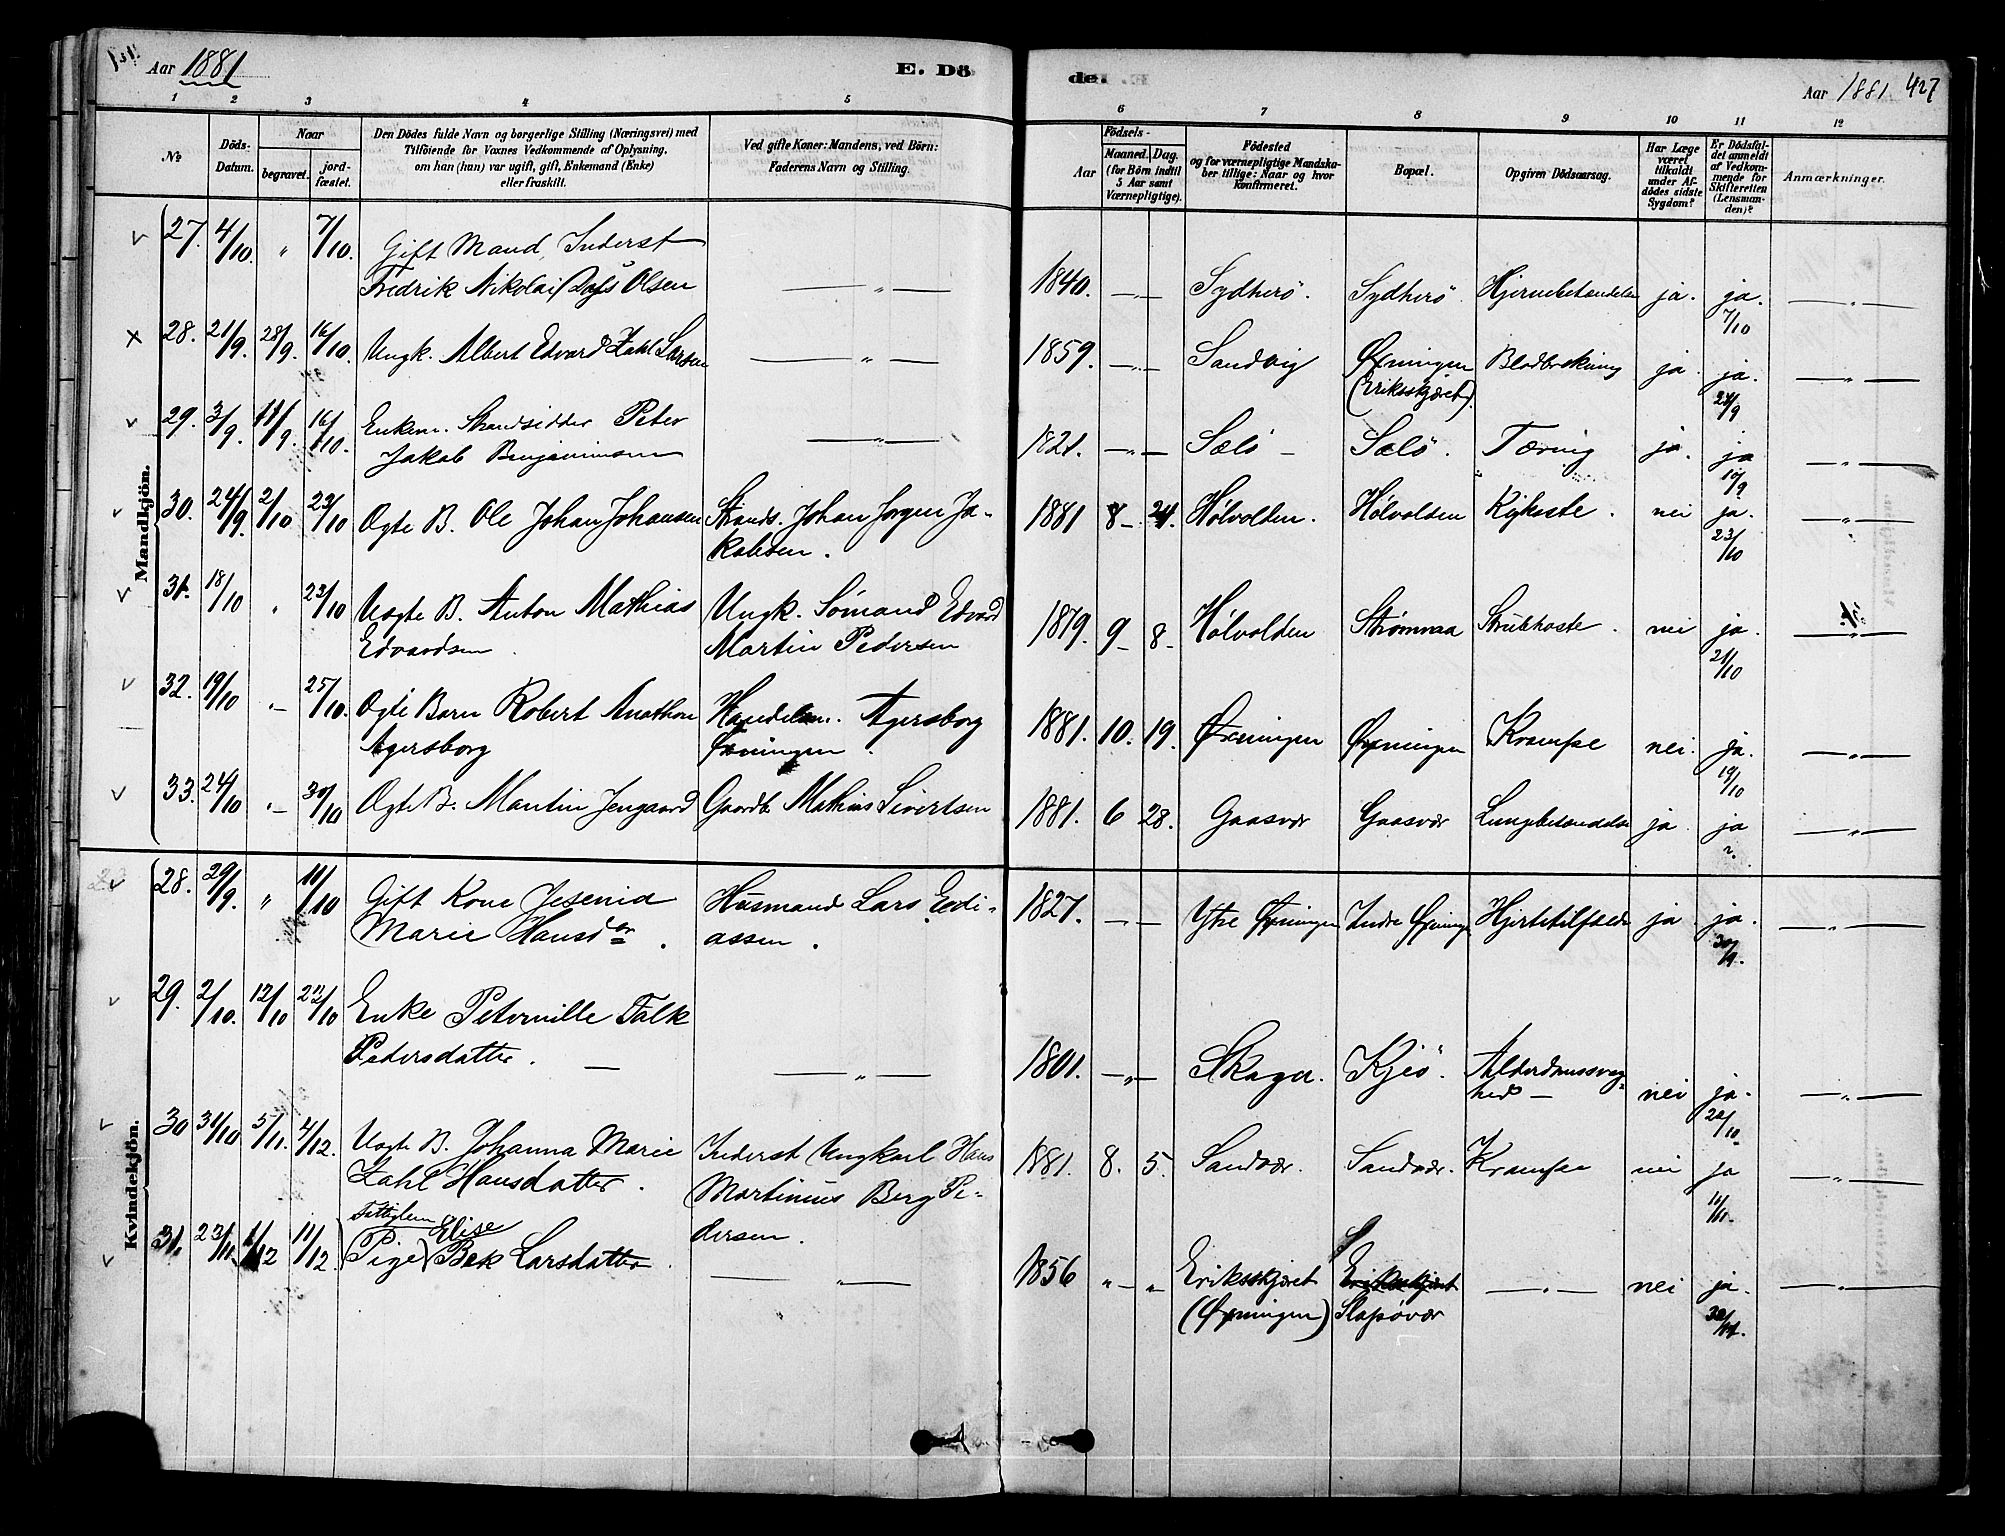 Aar 1881
E. Dö
de.
Aar 1881 427
1 2 3 4 5 6 7 8 9 10 11 12
No
Döds-Datum.
Naar
begravet.
jord-fæstet.
Den Dödes fulde Navn og borgerlige Stilling (Næringsvei) med
Tilföiende for Voxnes Vedkommende af Oplysning,
om han (hun) var ugift, gift, Enkemand (Enke)
eller fraskilt.
Ved gifte Koner: Mandens, ved Börn:
Faderens Navn og Stilling.
Födsels-
Aar
Maaned. Dag.
(for Börn indtil
5 Aar samt
Værnepligtige).
Födested
og for værnepligtige Mandska-
ber tillige: Naar og hvor
konfirmeret.
Bopæl.
Opgiven Dödsaarsag.
Har Læge
været
tilkaldt
under Af-
dödes sidste
Sygdom?
Er Dödsfal-
det anmeldt
af Vedkom-
mende for
Skifteretten
(Lensman-
den)?
Anmærkninger.
Mandkjön.
27. 4/10. " 7/10. Gift Mand, Inderst
Fredrik Nikolai Olsen — " — 1840. — " — Sydherö. Sydherö. Hjernebetændelse ja. ja. 7/10 — " —
28. 21/9. 28/9. 16/10. Ungk. Albert Edvard Zahl Larsen — " — 1859. — " — Sandvig Øxningen
(Eriksskjæret). Blodbrækning ja. ja. 24/9 — " —
29. 3/9. 11/9. 16/10. Enkem. Strandsidder Peter
Jakob Benjaminsen — " — 1821. — " — Sælö — Sælö. Tæring ja. ja 10/9 — " —
30. 24/9. 2/10 23/10 Ægte B. Ole Johan Johansen Strands. Johan Jørgen Ja-
kobsen. 1881 8 — 24. Hølvolden. Hølvolden Kighoste. nei ja. 23/10 — " —
31. 18/10 " 23/10 Uægte B. Anton Mathias
Edvardsen. Ungk. Sömand Edvard
Martin Pedersen 1879. 9 — 8 — Hølvolden Strømraa Strubhoste. nei ja. 21/10 — " —
32. 19/10 " — 25/10. Ægte Barn Robert Anathon
Agersborg Handelsm. Agersborg
Øxningen. 1881. 10. 19. Øxningen Øxningen Krampe nei. ja. 19/10 — " —
33. 24/10 " — 30/10 Ægte B. Martin Jengaard Gaardb. Mathias Sivertsen 1881. 6 28. Gaasvær Gaasvær Lungebetændelse ja. ja ?. — " —
Kvindekjön.
28. 29/9. " 11/10 Gift Kone Jesenia
Marie Hansdr. Husmand Lars
assen. 1827. — " — Ytre Øxningen Indre Øxningen Hjertetilfælde ja ja. 30/9. — " —
29. 2/10. 12/10 22/10 Enke Petornille Falk
Pedersdatter. — — " — 1801. — " — Skaga. Kjeö. Alderdomssvag-
hed — nei ja. 22/10. — " —
30 31/10 5/11. 4/12. Uægte B. Johanna Marie
Zahl Hansdatter. Inderst Ungkarl Hans
Martinius Berg Pe-
dersen. 1881. 8. 5. Sandvær. Sandvær. Krampe nei ja 10/11. — " —
31. 23/11. 1/12 11/12 Fattiglem
Pige Elise
Bek Larsdatter. — " — 1856 " — " Eriksskjæret
(Øxningen) Eriksskjæret
Slapøvær — " — nei ja. 30/11. — " —